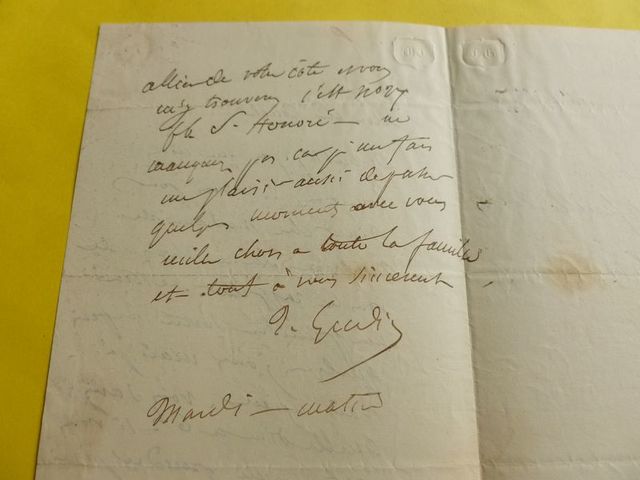 allier de votre côté vous
m'y trouverez c'est
fb St Honoré — ne
manquez pas car je me fais
un plaisir aussi de passer
quelques moments avec vous
mille choses a toute la famille
et tout à vous sincerement
Gudin
Mardi — matin